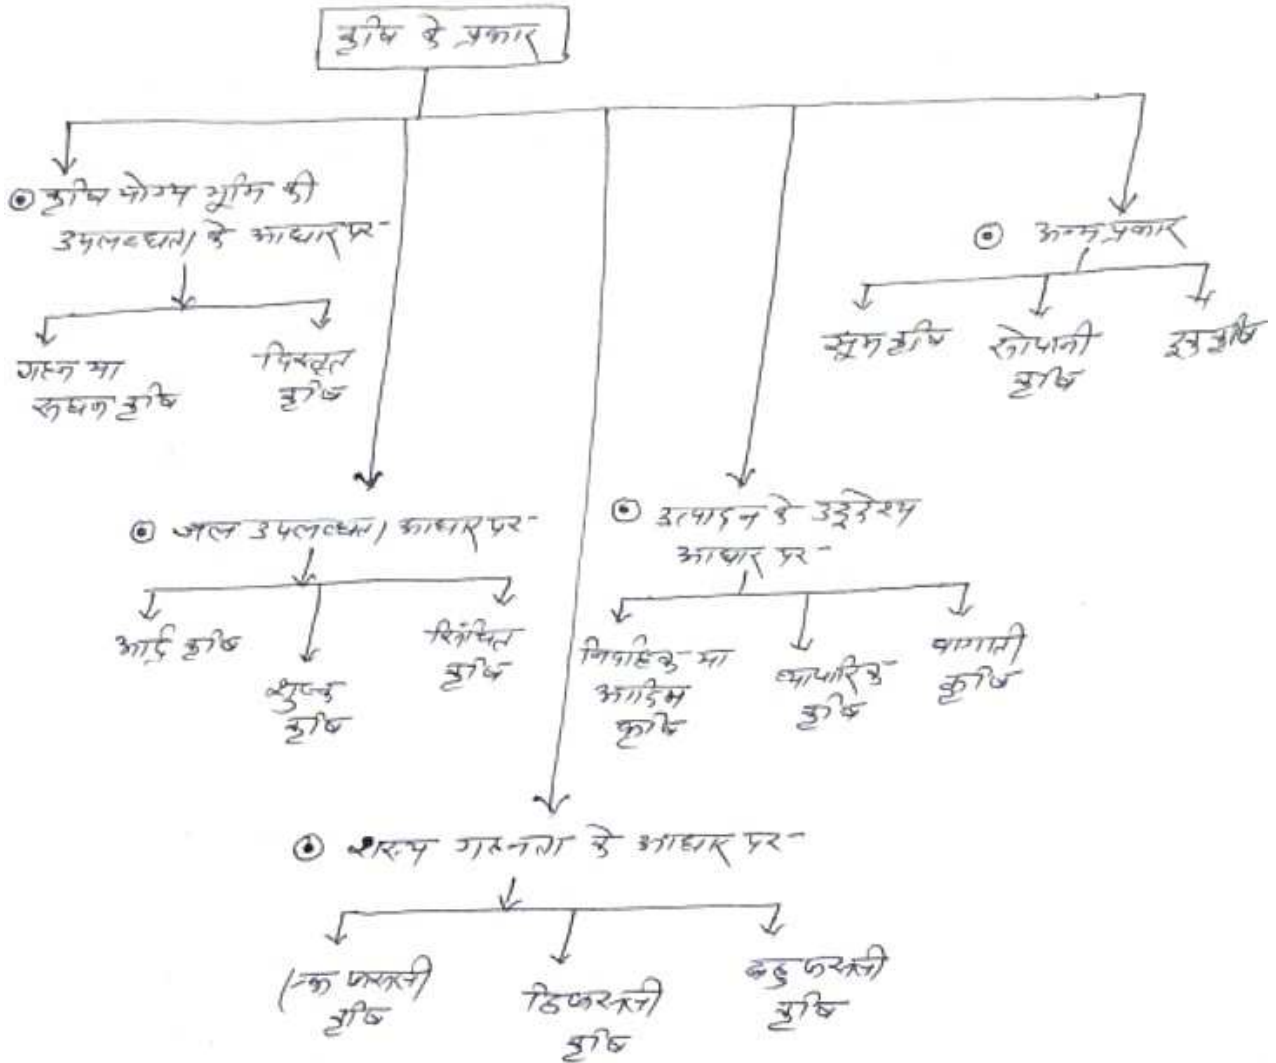 कृषि के प्रकार
कृषि योग्य भूमि की
उपलब्धता के आधार पर -
गहन या
सघन कृषि
विस्तृत
कृषि
जल उपलब्धता आधार पर -
आर्द्र कृषि
शुष्क
कृषि
सिंचित
कृषि
शस्य गहनता के आधार पर -
एक फसली
कृषि
द्विफसली
कृषि
बहु फसली
कृषि
उत्पादन के उद्देश्य
आधार पर -
निर्वाहक या
आदिम
कृषि
व्यापारिक
कृषि
बागाती
कृषि
अन्य प्रकार
झूम कृषि
सोपानी
कृषि
कृषि